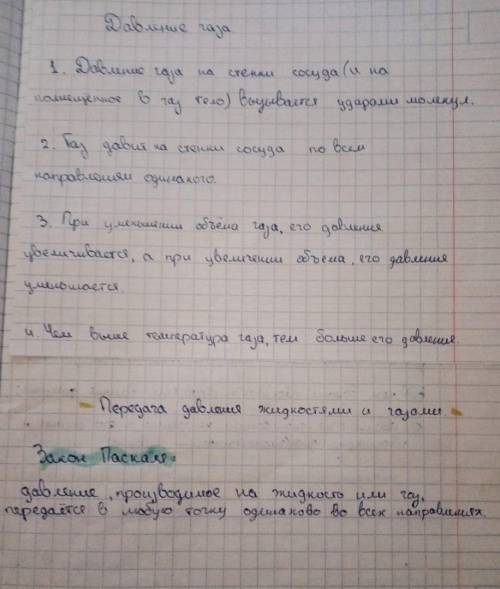 Давление газа
1. Давление газа на стенки сосуда (и на
помещённое в газ тело) вызывается ударами молекул.
2. Газ давит на стенки сосуда по всем
направлениям одинакого.
3. При уменьшении объёма газа, его давления
увеличивается, а при увеличении объёма, его давление
уменьшается.
4. Чем выше температура газа, тем больше его давление.
- Передача давления жидкостями и газами. -
Закон Паскаля.
давление, производимое на жидкость или газ,
передаётся в любую точку одинаково во всех направлениях.